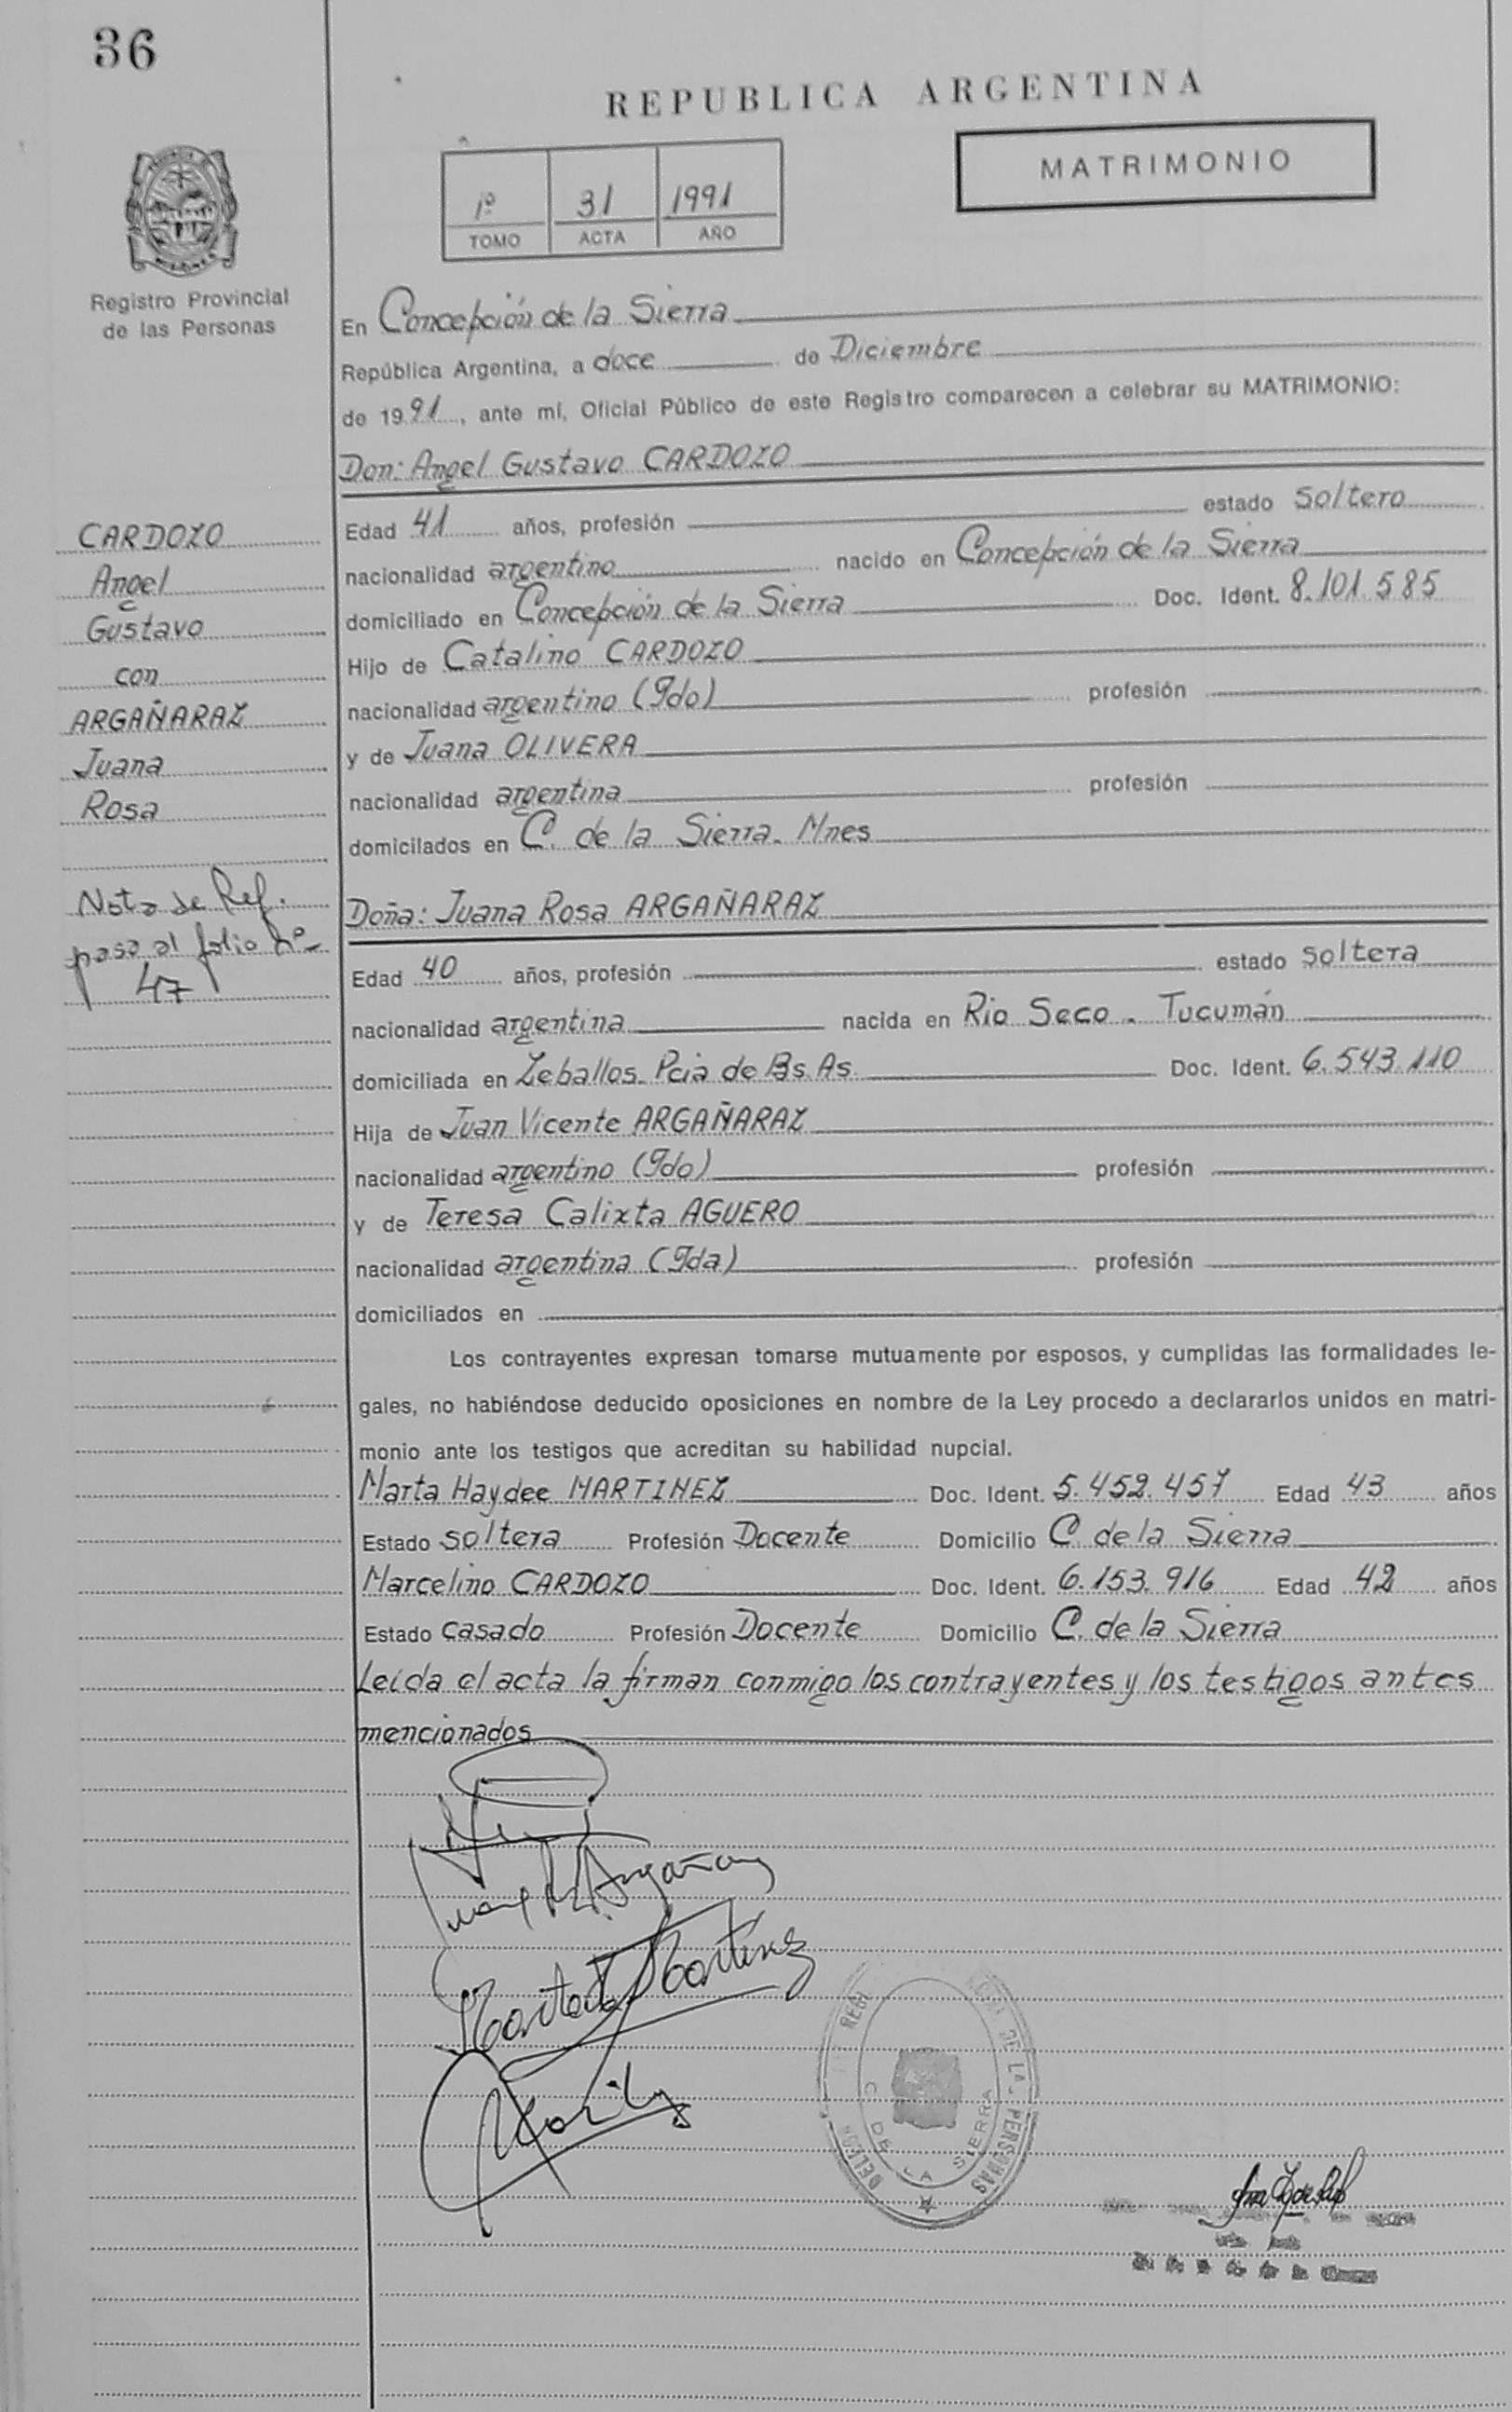 36
REPUBLICA ARGENTINA
MATRIMONIO
1º 31 1991
TOMO ACTA AÑO
MISIONES
Registro Provincial
de las Personas
En Concepción de la Sierra
República Argentina, a doce de Diciembre
de 1991, ante mí, Oficial Público de este Registro comparecen a celebrar su MATRIMONIO:
Don: Angel Gustavo CARDOZO
Edad 41 años, profesión estado soltero
nacionalidad argentino nacido en Concepción de la Sierra
domiciliado en Concepción de la Sierra Doc. Ident. 8.101.585
Hijo de Catalino CARDOZO
nacionalidad argentino (Fdo) profesión
y de Juana OLIVERA
nacionalidad argentina profesión
domicilados en C. de la Sierra. Mnes
CARDOZO
Angel
Gustavo
con
ARGAÑARAZ
Juana
Rosa
Nota de Ref.
pasa al folio Nº
47
Doña: Juana Rosa ARGAÑARAZ
Edad 40 años, profesión estado soltera
nacionalidad argentina nacida en Rio Seco - Tucumán
domiciliada en Zeballos. Pcia de Bs. As. Doc. Ident. 6.543.110
Hija de Juan Vicente ARGAÑARAZ
nacionalidad argentino (Fdo) profesión
y de Teresa Calixta AGUERO
nacionalidad argentina (Fda) profesión
domiciliados en
Los contrayentes expresan tomarse mutuamente por esposos, y cumplidas las formalidades le-
gales, no habiéndose deducido oposiciones en nombre de la Ley procedo a declararlos unidos en matri-
monio ante los testigos que acreditan su habilidad nupcial.
Marta Haydee MARTINEZ Doc. Ident. 5.452.457 Edad 43 años
Estado soltera Profesión Docente Domicilio C. de la Sierra
Marcelino CARDOZO Doc. Ident. 6.153.916 Edad 42 años
Estado casado Profesión Docente Domicilio C. de la Sierra
Leída el acta la firman conmigo los contrayentes y los testigos antes
mencionados
Juana R Argañaraz
Marta H Martinez
DE LA. PERSONAS
C. DE LA SIERRA